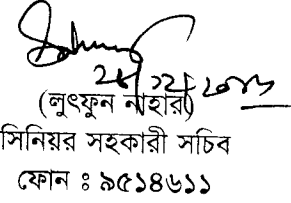 (লুৎফুন নাহার)
সিনিয়র সহকারী সচিব
ফোন ঃ ৯৫১৪৬১১